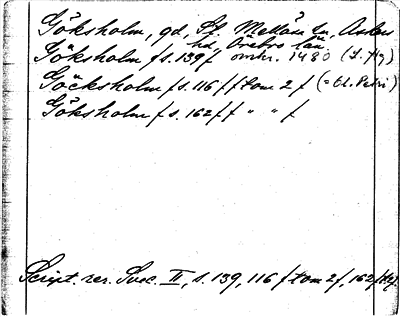 Göksholm, gd, Sf. Mellösa sn, Askers
hd, Örebro län.
Göksholm f s. 139 f omkr. 1480 (J. fig)
Göcksholm f s. 116 f f tom 2 f (= Ol. Petri)
Göksholm f s. 162 f f " " f
Script. rer. Svec. II, s. 139, 116 f tom 2 f, 162 f